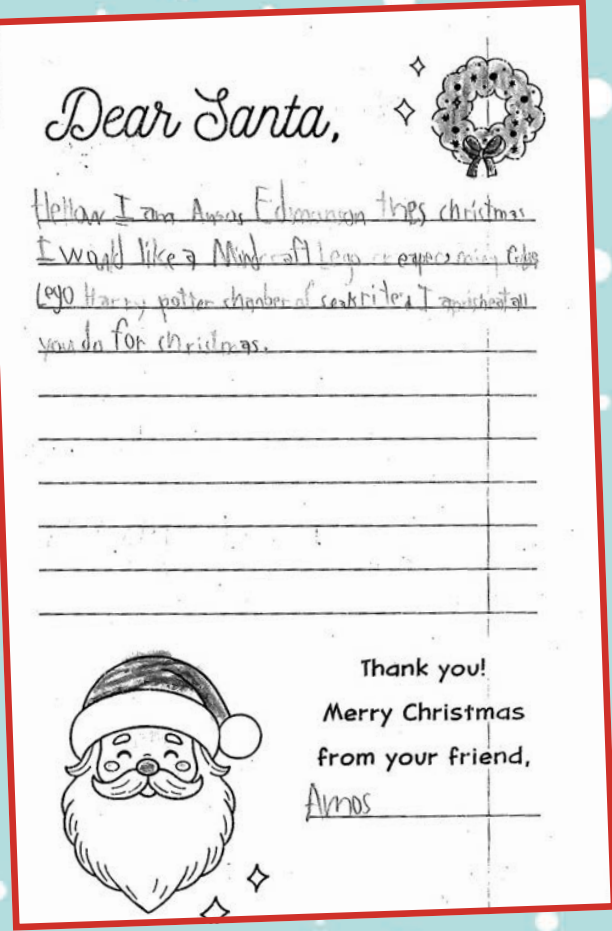 Dear Santa,
Hellow I am Amos Edmonson thies christmas
I would like a Mindcraft Lego creeper
Lego Harry potter chamber of seakrites I aprisheat all
you do for christmas.
Thank you!
Merry Christmas
from your friend,
Amos